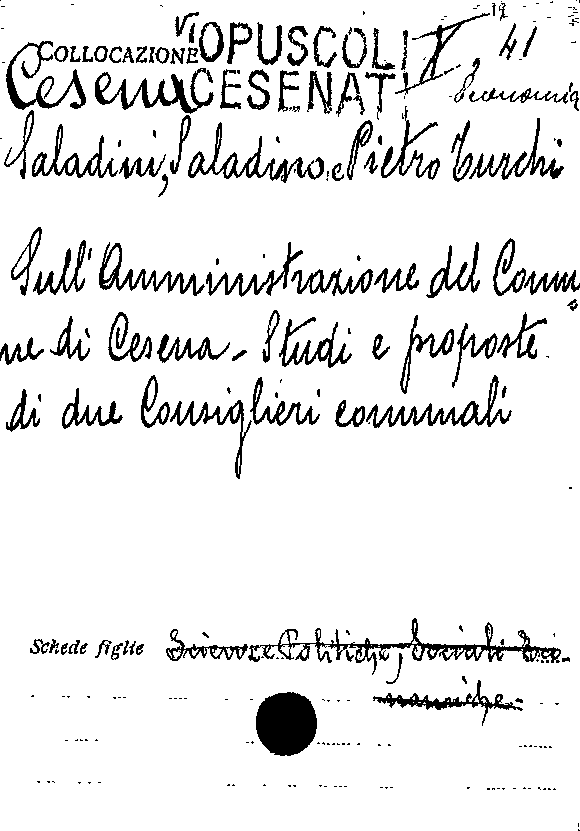 VI OPUSCOLI X, 41 19
COLLOCAZIONE
Cesena CESENATI Economia
Saladini, Saladino e Pietro Turchi
Sull'Amministrazione del Comu
ne di Cesena - Studi e proposte
di due Consiglieri comunali
Schede figlie Scienze Politiche, Sociali Eco-
nomiche